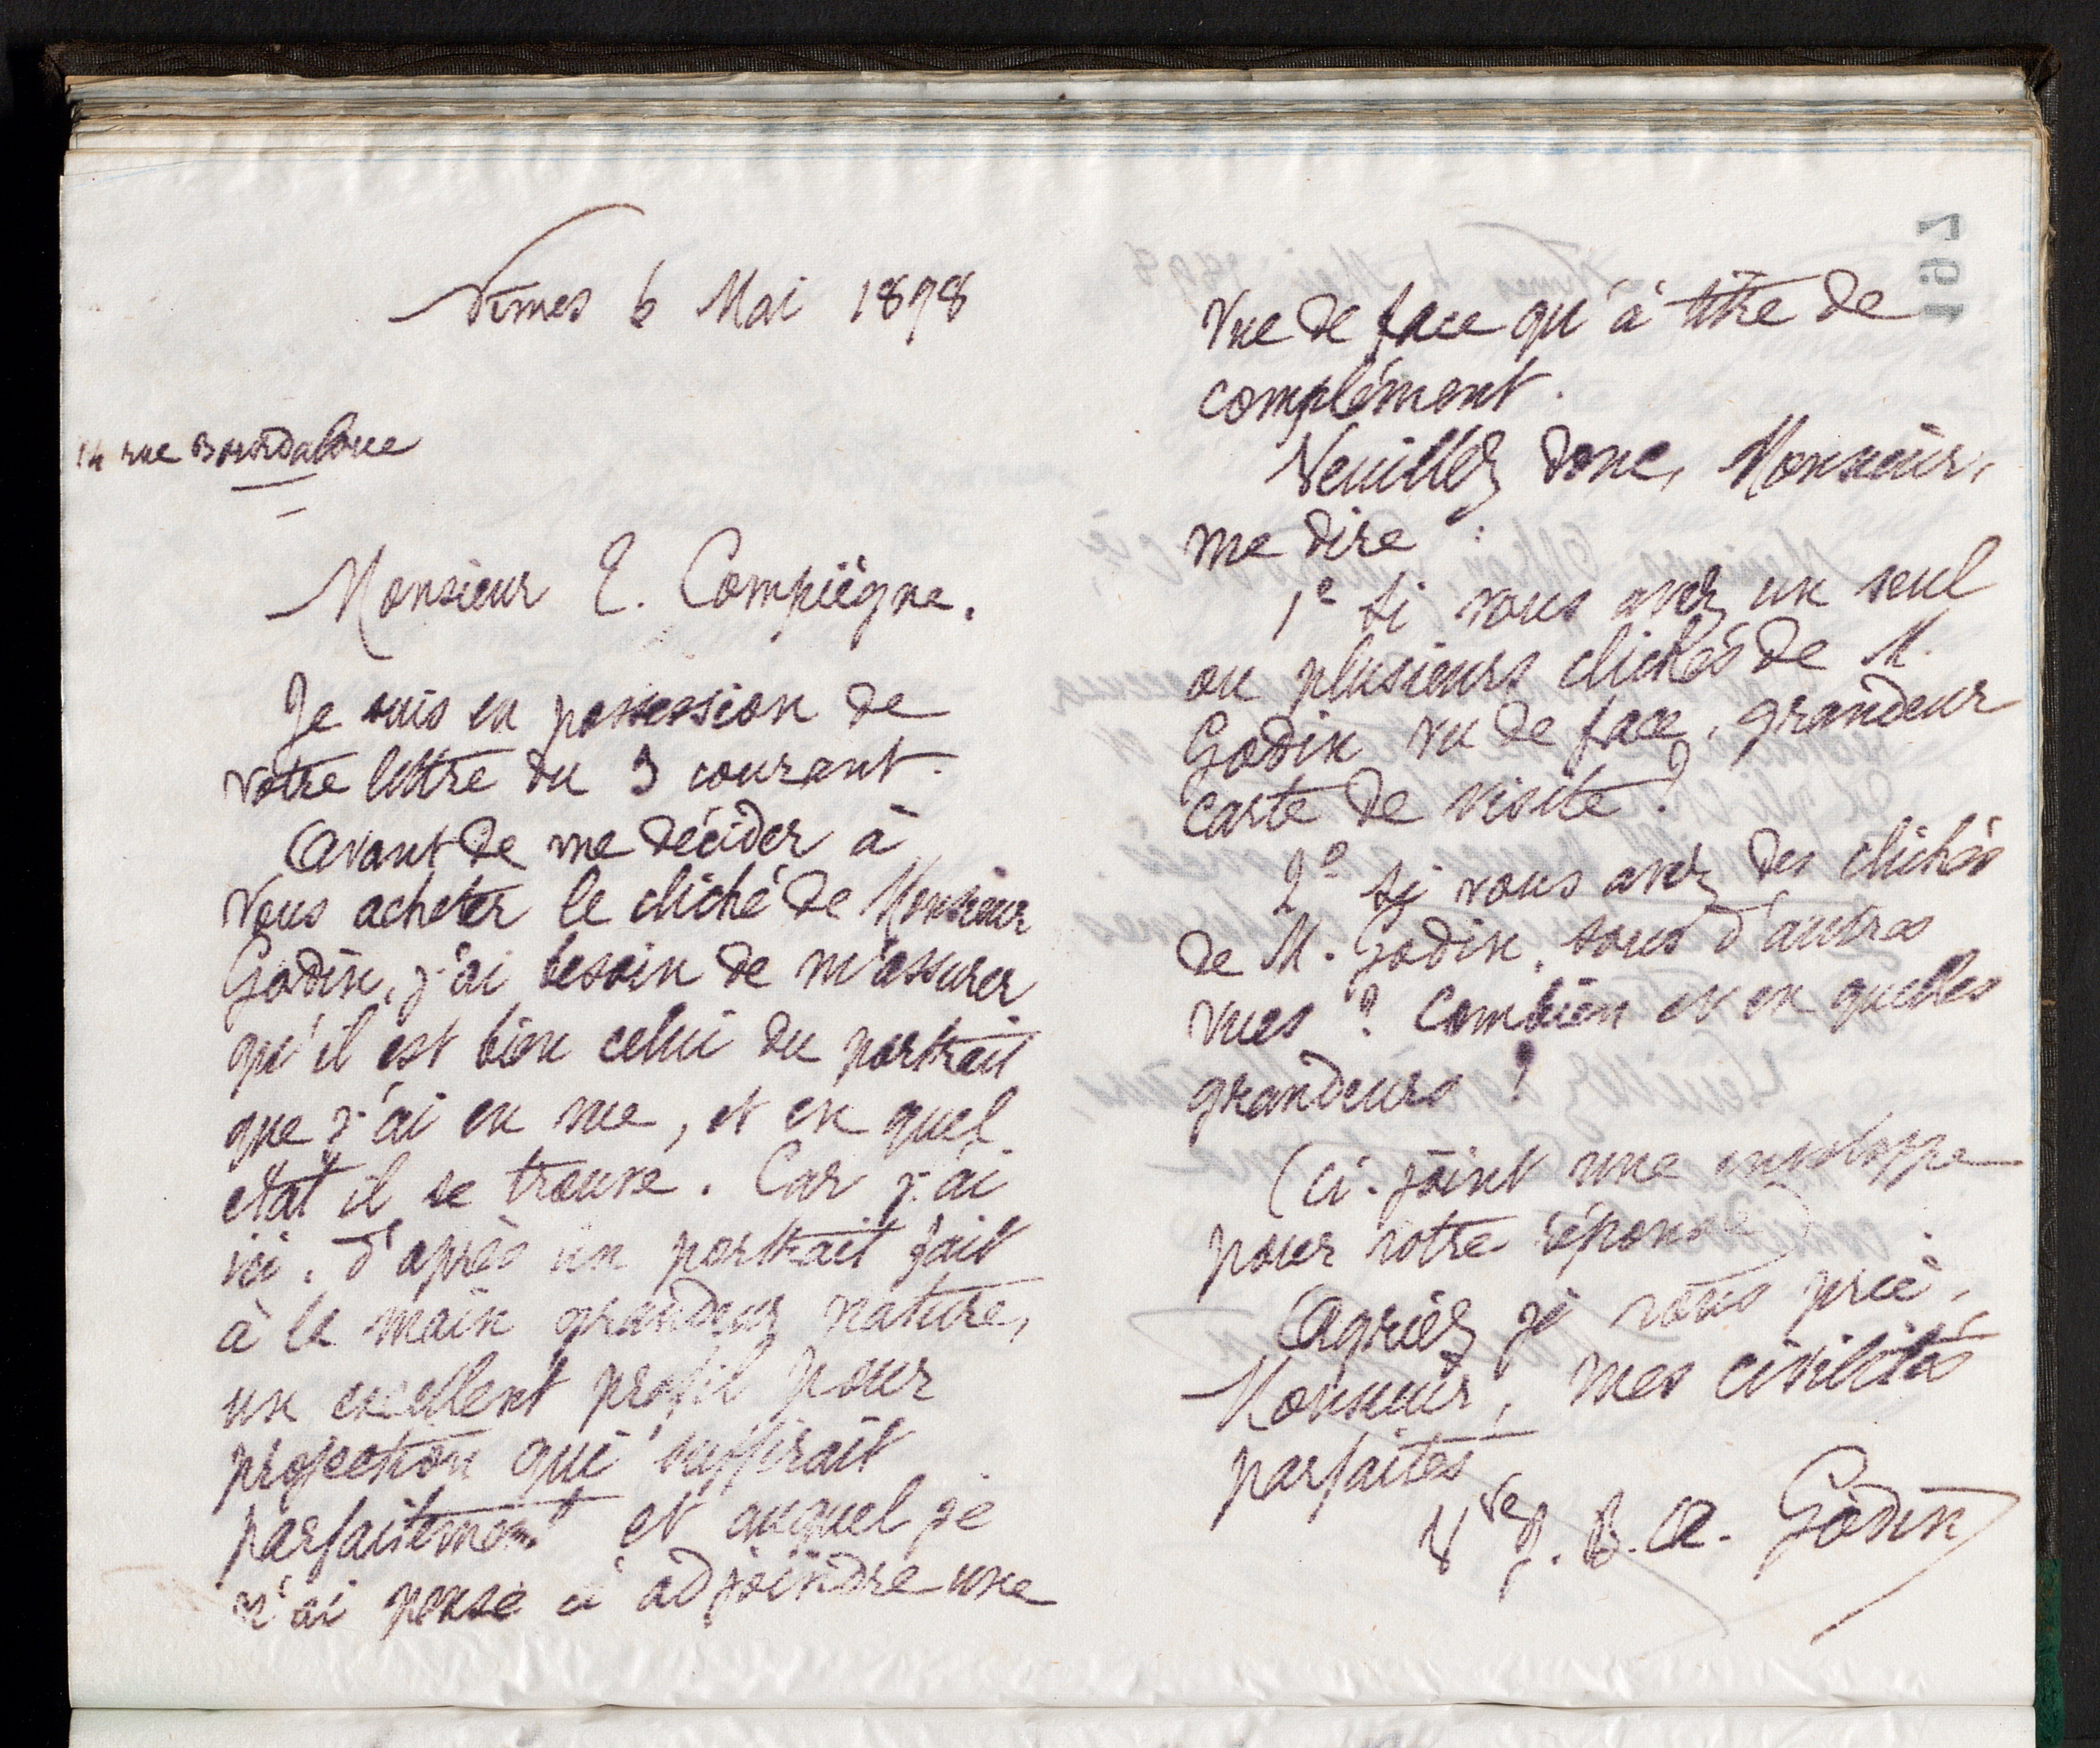 Nîmes 6 Mai 1898
14 rue Bourdaloue
Monsieur E. Compiègne.
Je suis en possession de
votre lettre du 3 courant.
Avant de me décider à
vous acheter le cliché de Monsieur
Godin, j'ai besoin de m'assurer
qu'il est bien celui du portrait
que j'ai en vue, et en quel
état il se trouve. Car j'ai
ici, d'après un portrait fait
à la main grandeur nature,
un excellent profil pour
projection qui suffirait
parfaitement et auquel je
n'ai pensé à adjoindre une
vue de face qu'à titre de
complément.
Veuillez donc, Monsieur,
me dire :
1º si vous avez un seul
ou plusieurs clichés de M.
Godin vu de face, grandeur
carte de visite ?
2º si vous avez des clichés
de M. Godin, sous d'autres
vues ? Combien et en quelles
grandeurs ?
(ci-joint une enveloppe
pour votre réponse)
Agréez je vous prie,
Monsieur, mes civilités
parfaites
Vve J. B. A. Godin